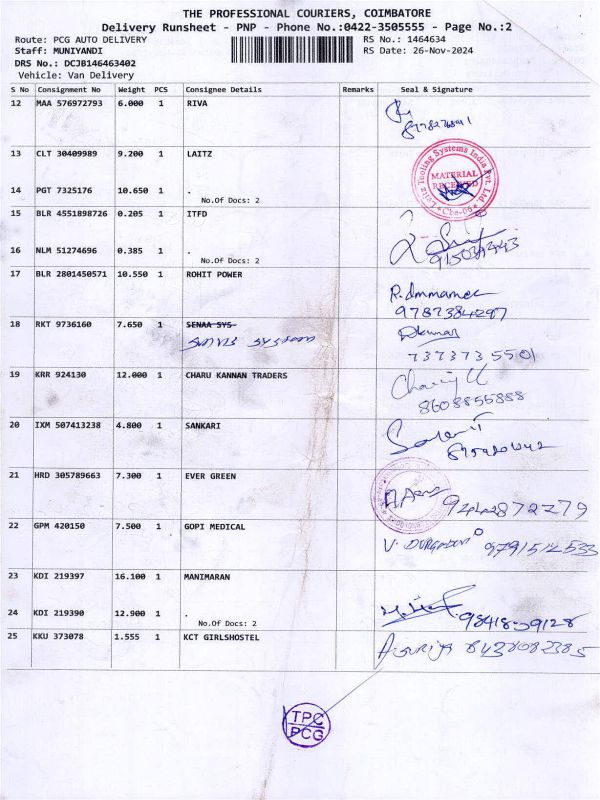 THE PROFESSIONAL COURIERS, COIMBATORE
Delivery Runsheet - PNP - Phone No.:0422-3505555 - Page No.:2
Route: PCG AUTO DELIVERY
Staff: MUNIYANDI
DRS No.: DCJB146463402
Vehicle: Van Delivery
RS No.: 1464634
RS Date: 26-Nov-2024
S No Consignment No Weight PCS Consignee Details Remarks Seal & Signature
12 MAA 576972793 6.000 1 RIVA
13 CLT 30409989 9.200 1 LAITZ
Leitz Tooling Systems India Pvt. Ltd
MATERIAL
RECEIVED
Cbe-06
14 PGT 7325176 10.650 1 .
No.Of Docs: 2
15 BLR 4551898726 0.205 1 ITFD
16 NLM 51274696 0.385 1 .
No.Of Docs: 2
17 BLR 2801450571 10.550 1 ROHIT POWER
9787384297
18 RKT 9736160 7.650 1 SENAA SYS
7373735501
19 KRR 924130 12.000 1 CHARU KANNAN TRADERS
8608855888
20 IXM 507413238 4.800 1 SANKARI
21 HRD 305789663 7.300 1 EVER GREEN
22 GPM 420150 7.500 1 GOPI MEDICAL
23 KDI 219397 16.100 1 MANIMARAN
24 KDI 219390 12.900 1 .
No.Of Docs: 2
98418-39128
25 KKU 373078 1.555 1 KCT GIRLSHOSTEL
TPC
PCG